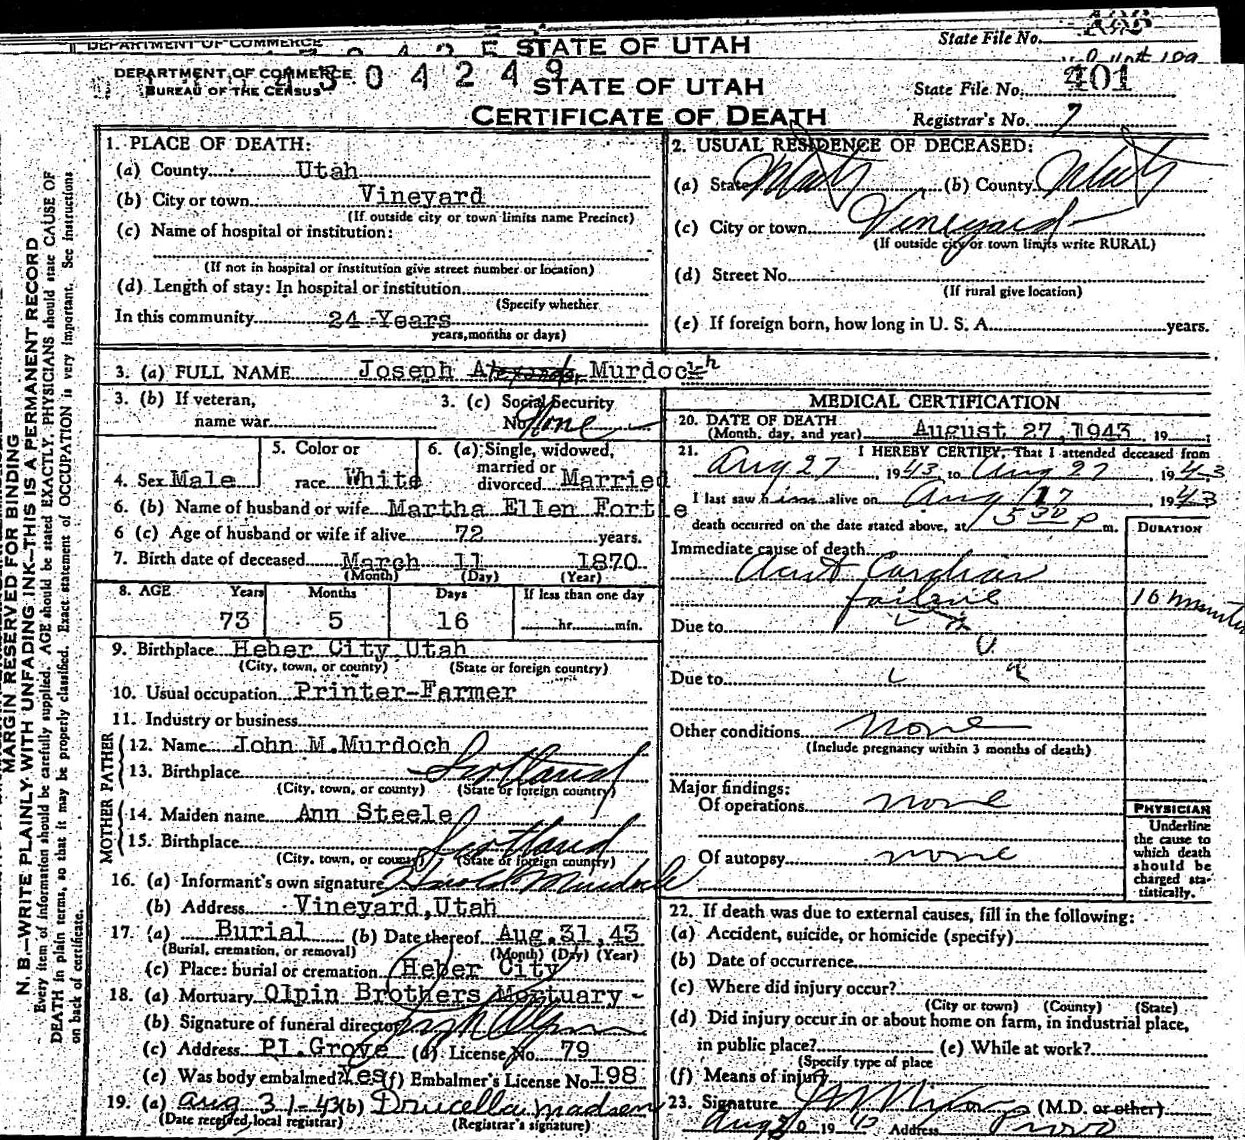 DEPARTMENT OF COMMERCE
STATE OF UTAH
State File No.
DEPARTMENT OF COMMERCE
BUREAU OF THE CENSUS
304249
STATE OF UTAH
State File No. 401
CERTIFICATE OF DEATH
Registrar's No. 7
MARGIN RESERVED FOR BINDING
N. B.—WRITE PLAINLY WITH UNFADING INK—THIS IS A PERMANENT RECORD
Every item of information should be carefully supplied. AGE should be stated EXACTLY. PHYSICIANS should state CAUSE OF
DEATH in plain terms, so that it may be properly classified. Exact statement of OCCUPATION is very important. See instructions
on back of certificate.
1. PLACE OF DEATH:
(a) County Utah
(b) City or town Vineyard
(If outside city or town limits name Precinct)
(c) Name of hospital or institution:
(If not in hospital or institution give street number or location)
(d) Length of stay: In hospital or institution
(Specify whether
In this community 24 Years
years, months or days)
2. USUAL RESIDENCE OF DECEASED:
(a) State Utah (b) County Utah
(c) City or town Vineyard
(If outside city or town limits write RURAL)
(d) Street No.
(If rural give location)
(e) If foreign born, how long in U. S. A. years.
3. (a) FULL NAME Joseph A Murdock h
3. (b) If veteran,
name war
3. (c) Social Security
No. None
4. Sex Male
5. Color or
race White
6. (a) Single, widowed,
married or
divorced Married
6. (b) Name of husband or wife Martha Ellen Fortie
6 (c) Age of husband or wife if alive 72 years.
7. Birth date of deceased March 11 1870
(Month) (Day) (Year)
8. AGE Years Months Days If less than one day
73 5 16 hr. min.
9. Birthplace Heber City Utah
(City, town, or county) (State or foreign country)
10. Usual occupation Printer-Farmer
11. Industry or business
FATHER
12. Name John M. Murdoch
13. Birthplace Scotland
(City, town, or county) (State or foreign country)
MOTHER
14. Maiden name Ann Steele
15. Birthplace Scotland
(City, town, or county) (State or foreign country)
16. (a) Informant's own signature Murdoch
(b) Address Vineyard, Utah
17. (a) Burial (b) Date thereof Aug. 31, 43
(Burial, cremation, or removal) (Month) (Day) (Year)
(c) Place: burial or cremation Heber City
18. (a) Mortuary Olpin Brothers Mortuary -
(b) Signature of funeral director
(c) Address Pl. Grove (d) License No. 79
(e) Was body embalmed? Yes (f) Embalmer's License No. 198
19. (a) Aug 31-43 (b) Drucella Madsen
(Date received, local registrar) (Registrar's signature)
MEDICAL CERTIFICATION
20. DATE OF DEATH
(Month, day, and year) August 27, 1943 19
21. I HEREBY CERTIFY, That I attended deceased from
Aug 27 1943, to Aug 27, 1943
I last saw him alive on Aug 1943
death occurred on the date stated above, at 5 30 P m.
DURATION
Immediate cause of death
Acut Cardiac
failure 10 minutes
Due to
Due to
Other conditions None
(Include pregnancy within 3 months of death)
Major findings:
Of operations none
Of autopsy none
PHYSICIAN
Underline
the cause to
which death
should be
charged sta-
tistically.
22. If death was due to external causes, fill in the following:
(a) Accident, suicide, or homicide (specify)
(b) Date of occurrence
(c) Where did injury occur?
(City or town) (County) (State)
(d) Did injury occur in or about home on farm, in industrial place,
in public place? (e) While at work?
(Specify type of place
(f) Means of injury
23. Signature (M.D. or other)
Aug 19 Address Provo